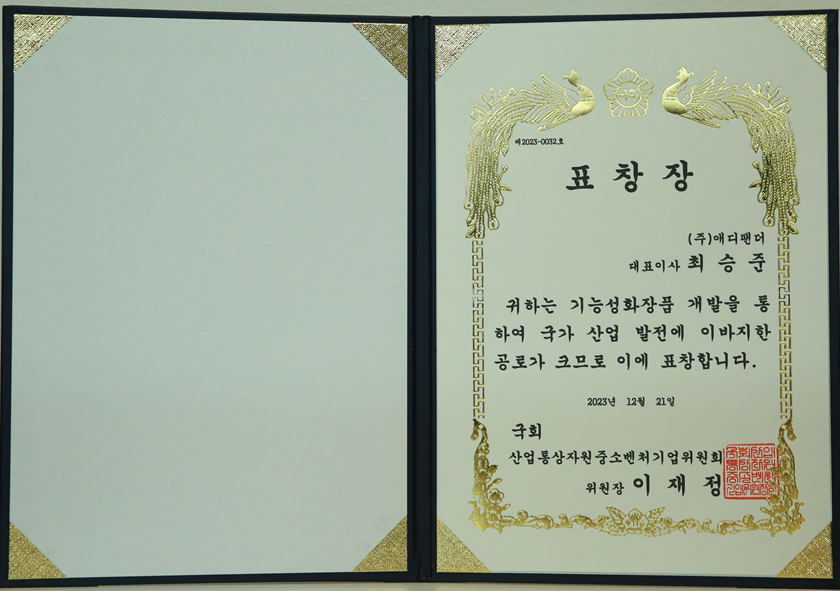 제2023-0032호
표창장
(주)애디팬더
대표이사 최승준
귀하는 기능성화장품 개발을 통
하여 국가 산업 발전에 이바지한
공로가 크므로 이에 표창합니다.
2023년 12월 21일
국회
산업통상자원중소벤처기업위원회
위원장 이재정